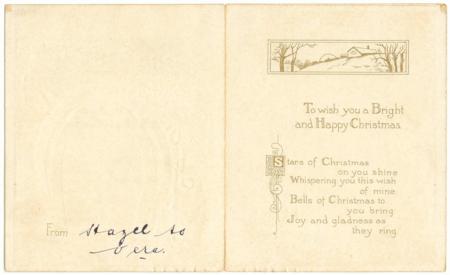 From Hazel to
Vera.
To wish you a Bright
and Happy Christmas
Stars of Christmas
on you shine
Whispering you this wish
of mine
Bells of Christmas to
you bring
Joy and gladness as
they ring